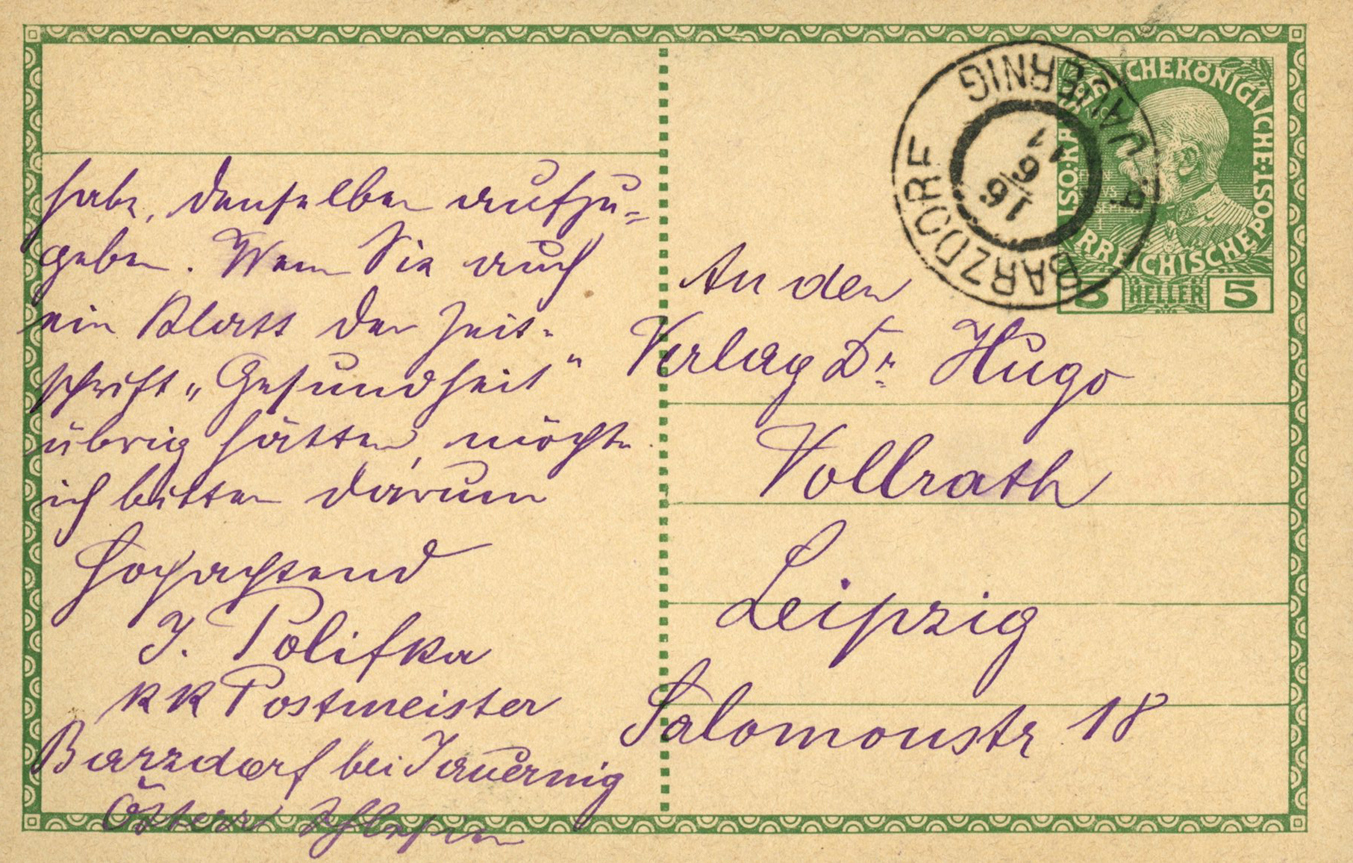 habe, denselben aufzu=
geben. Wenn Sie auch
ein Blatt der Zeit-
schrift „Gesundheit“
übrig hätten, möchte
ich bitten darum
Hochachtend
J. Polifka
kk Postmeister
Barzdorf bei Jauernig
Österr Schlesien
BARZDORF
B. JAUERNIG
16
6
11
KAISERLICHE KÖNIGLICHE
ÖSTERREICHISCHE POST
5 HELLER 5
An den
Verlag Dr. Hugo
Vollrath
Leipzig
Salomonstr 18